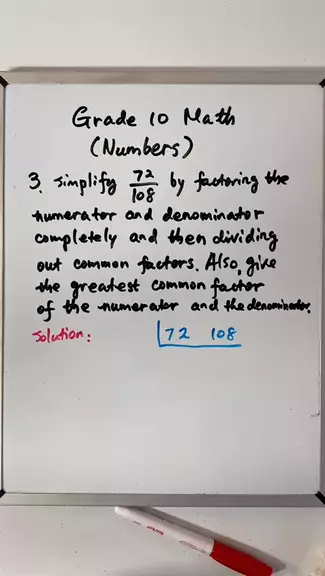 Grade 10 Math
(Numbers)
3. Simplify 72/108 by factoring the
numerator and denominator
completely and then dividing
out common factors. Also, give
the greatest common factor
of the numerator and the denominator.
Solution: 72 108